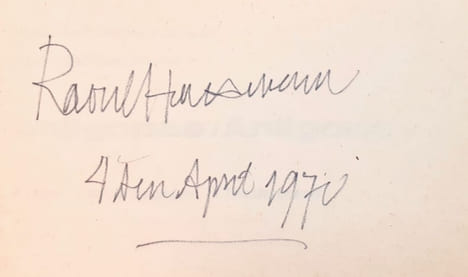 Raoul Hausmann
4 den April 1970